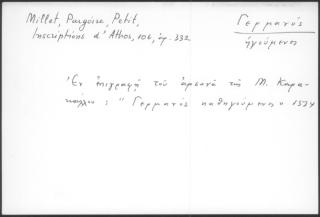 Millet, Pargoire, Petit,
Inscriptions d'Athos, 106, ἀρ. 332
Γερμανός
ἡγούμενος
Ἐν ἐπιγραφῇ τοῦ ἀρσανᾶ τῆς Μ. Καρα-
κάλλου: "Γερμανὸς καθηγούμενος 1534